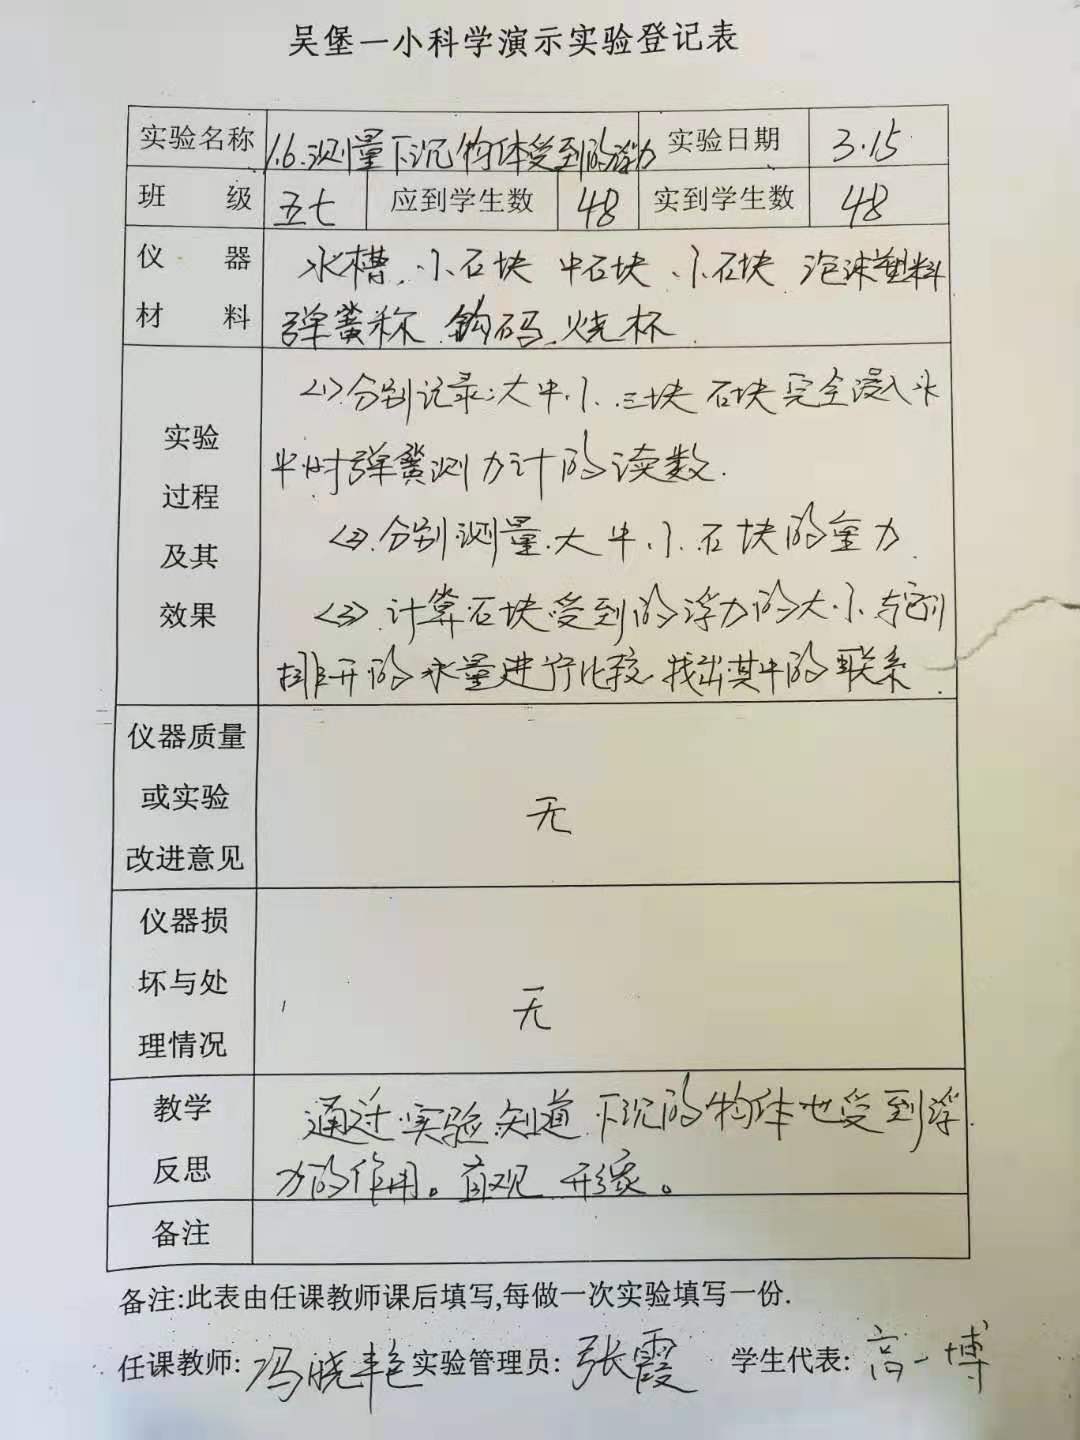 吴堡一小科学演示实验登记表
实验名称 1.6.测量下沉物体受到的浮力 实验日期 3.15
班 级 五七 应到学生数 48 实到学生数 48
仪 器 水槽、小石块 中石块、小石块 泡沫塑料
材 料 弹簧称 钩码、烧杯
<1>分别记录:大中小三块石块完全浸入水
实验
中时弹簧测力计的读数.
过程
<2>.分别测量.大中小石块的重力
及其
<3>.计算石块受到的浮力的大小与它们
效果
排开的水量进行比较.找出其中的联系
仪器质量
或实验
无
改进意见
仪器损
坏与处
无
理情况
教学 通过实验知道下沉的物体也受到浮
反思 力的作用。直观 形象。
备注
备注:此表由任课教师课后填写,每做一次实验填写一份.
任课教师: 冯晓艳 实验管理员: 张霞 学生代表: 高一博